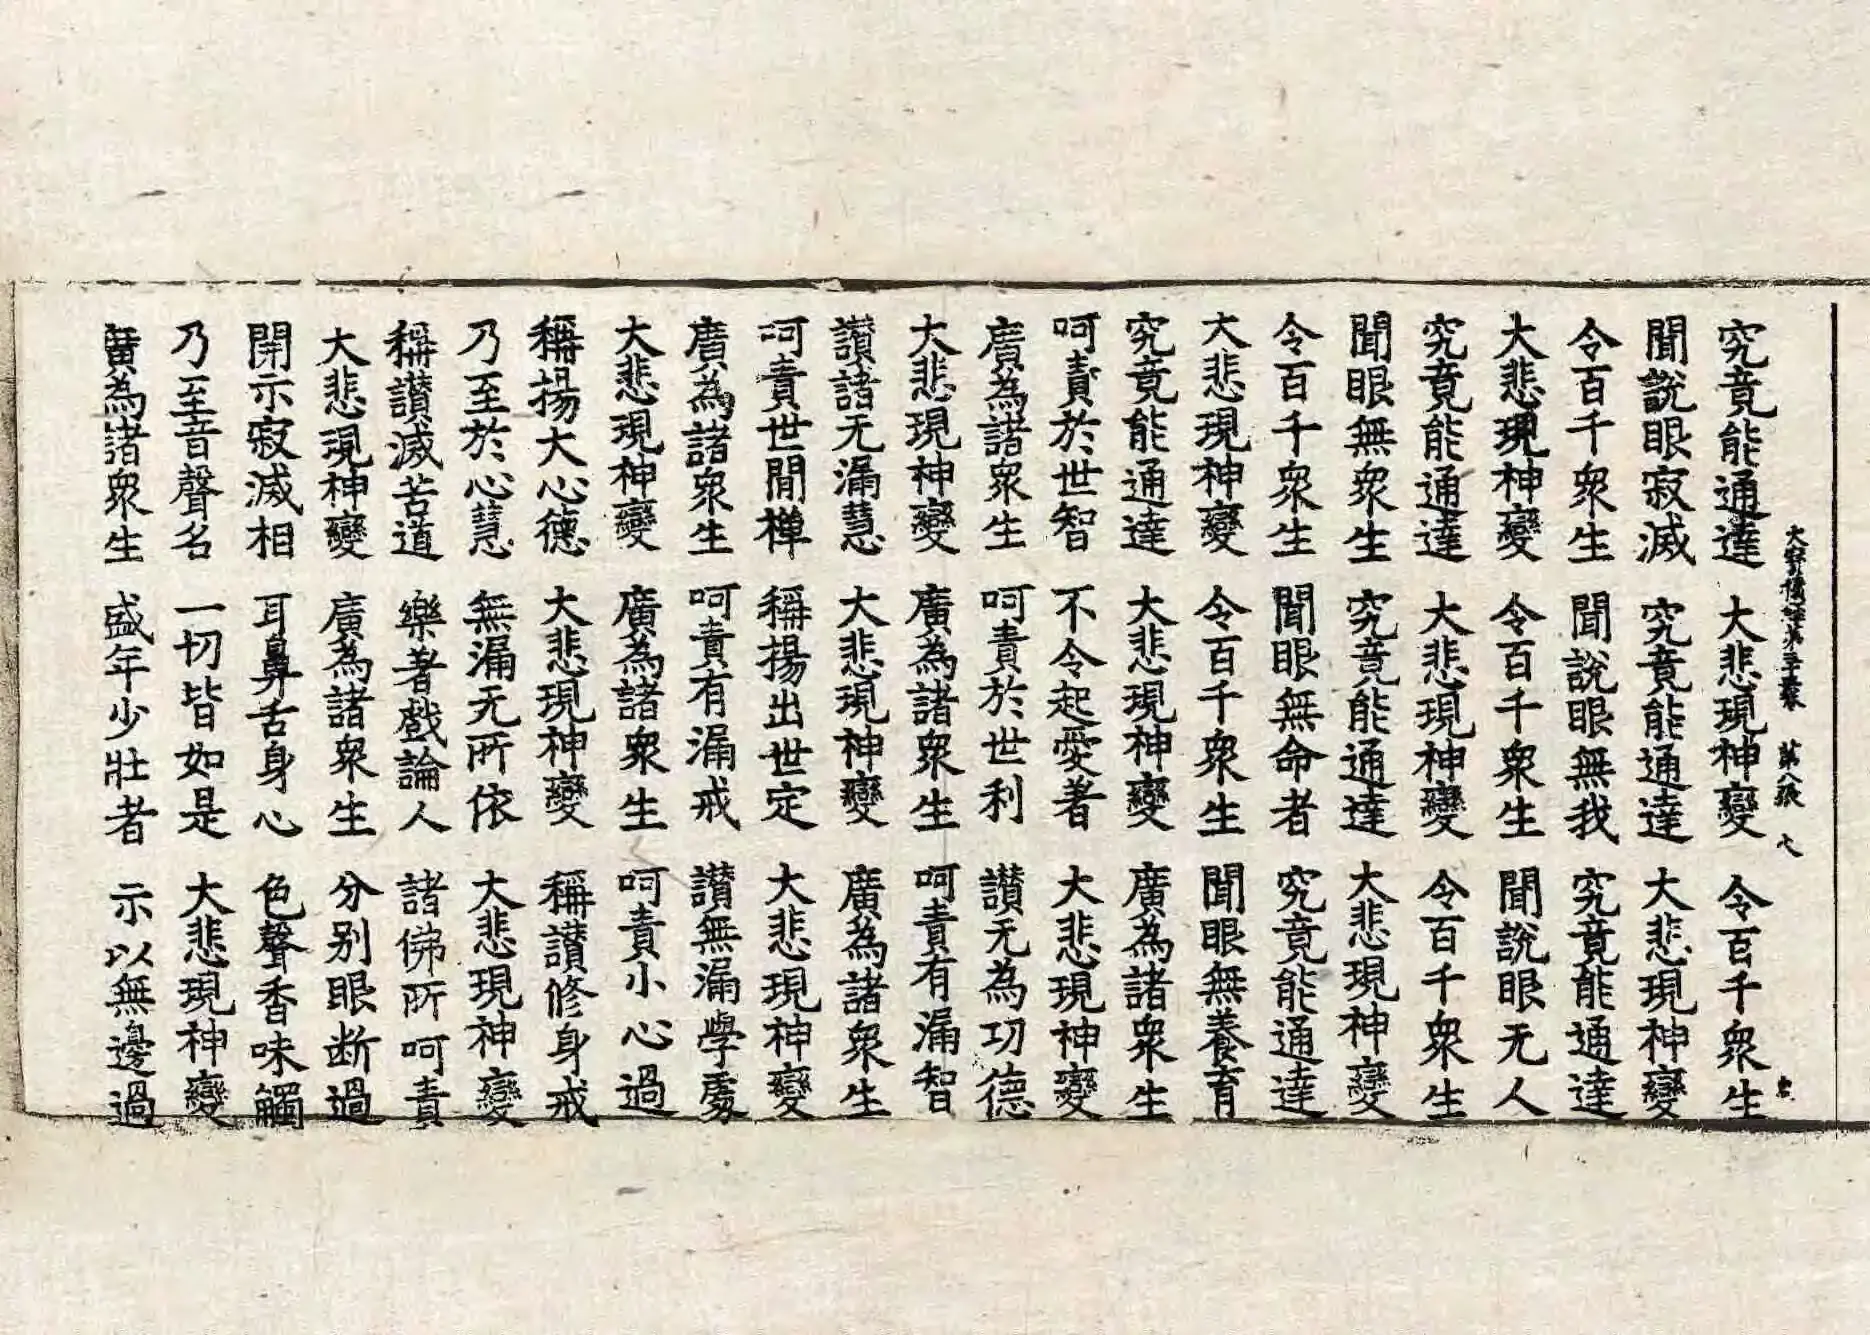 究竟能通達 大悲現神變 令百千衆生
聞說眼寂滅 究竟能通達 大悲現神變
令百千衆生 聞說眼無我 究竟能通達
大悲現神變 令百千衆生 聞說眼无人
究竟能通達 大悲現神變 令百千衆生
聞眼無衆生 究竟能通達 大悲現神變
令百千衆生 聞眼無命者 究竟能通達
大悲現神變 令百千衆生 聞眼無養育
究竟能通達 大悲現神變 廣為諸衆生
呵責於世智 不令起愛著 大悲現神變
廣為諸衆生 呵責於世利 讃无為功德
大悲現神變 廣為諸衆生 呵責有漏智
讃諸无漏慧 大悲現神變 廣為諸衆生
呵責世間禅 稱揚出世定 大悲現神變
廣為諸衆生 呵責有漏戒 讃無漏學處
大悲現神變 廣為諸衆生 呵責小心過
稱揚大心德 大悲現神變 稱讃修身戒
乃至於心慧 無漏无所依 大悲現神變
稱讃滅苦道 樂著戲論人 諸佛所呵責
大悲現神變 廣為諸衆生 分别眼断過
開示寂滅相 耳鼻舌身心 色聲香味觸
乃至音聲名 一切皆如是 大悲現神變
廣為諸衆生 盛年少壯者 示以無邊過